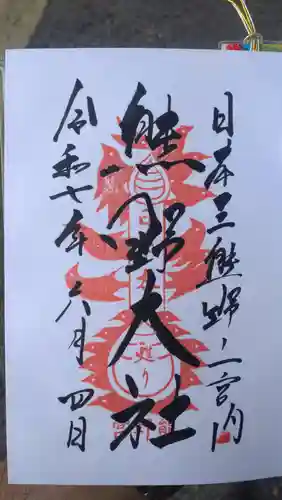 日本三熊野ノ一宮内
熊野大社
令和七年六月四日